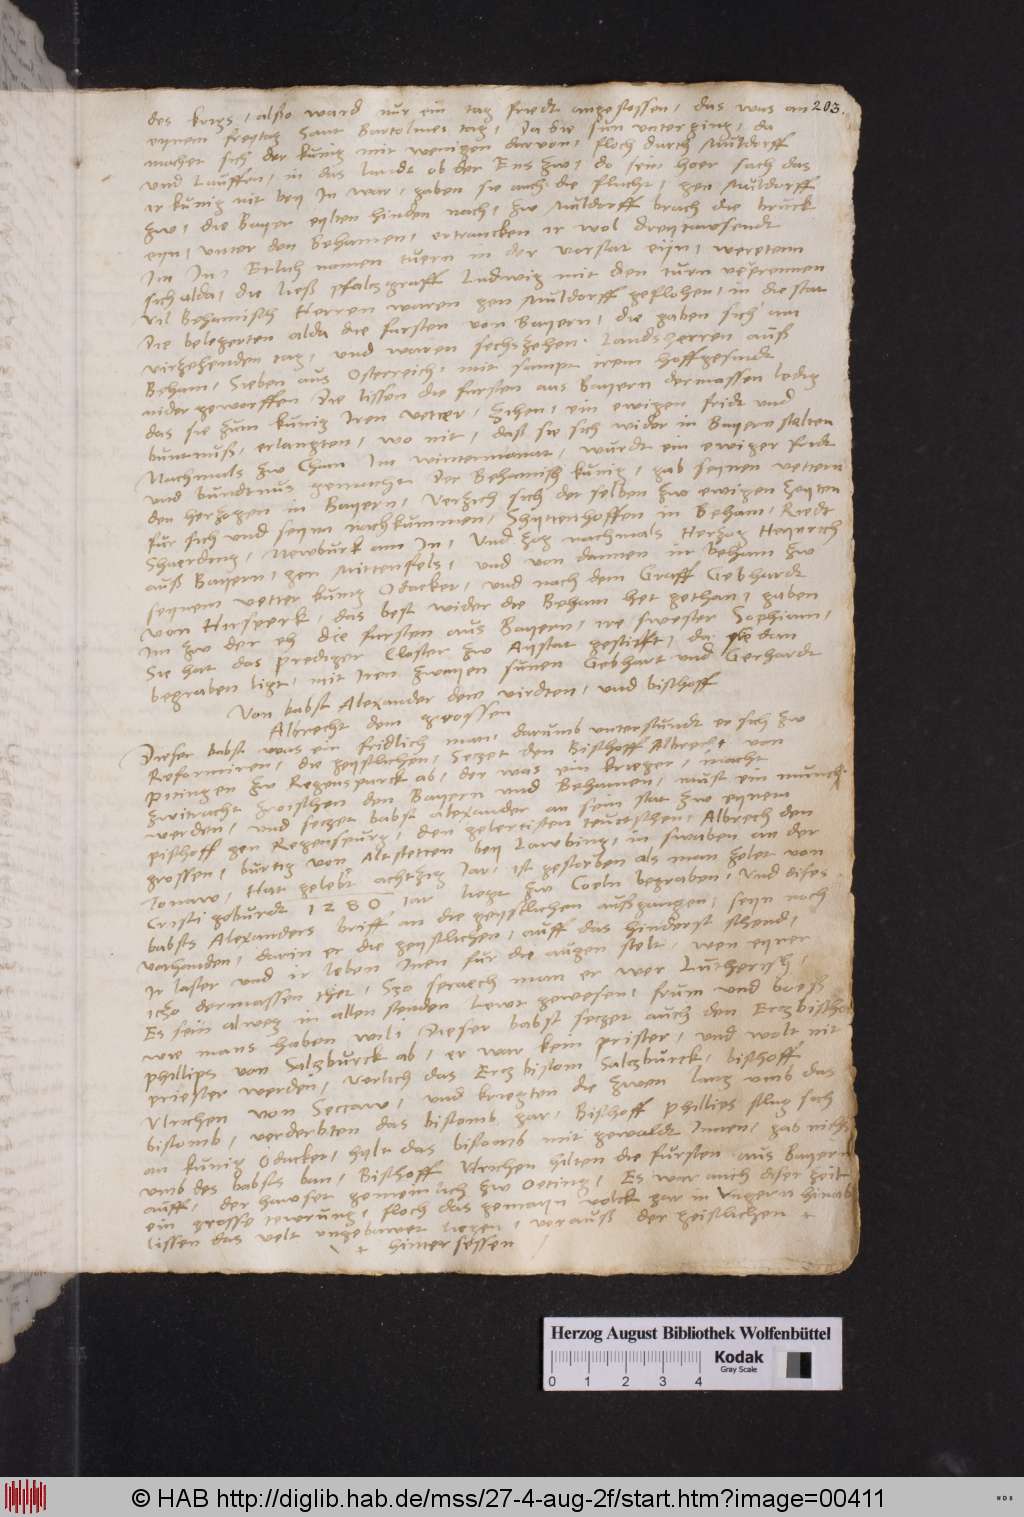 203.
des krigs, also ward nur ein tag fridt angestossen, das was an
eynem freytag Sant Bartolmes tag, Da die sun unterging, da
machet sich der kunig mit wenigen darvon, floch durch Muldorff
und Lauffen, in das landt ob der Ens zw, do sein hoer sach das
ir kunig nit bey In war, gaben sie auch die flucht, gen Muldorff
zw, die Bayer eylten hinden nach, zw Muldorff brach die bruck
eyn, unter den Behamen, ertrancken ir wol dreytawsendt
Im In, Etlich namen tuern in der vorstat eyn, wereten
sich alda, die ließ pfalczgraff Ludwig mit dem turn verprennen
vil Behamisch Herren waren gen Muldorff geflohen, in die stat
Die belegerten alda die fursten von Bayern, die gaben sich am
virzehenden tag, und waren sechszehen Landsherren auß
Beham, Sieben aus Osterreich, mit sampt irem hoffgesindt
nider geworffen, Die lissen die fursten aus Bayern dermassen ledig
das sie zum kunig Iren vetter, zihen, ein ewigen fridt und
buntnuß, erlangten, wo nit, daß sie sich wider in Bayern stelten
Nachmals zw Cham Im wintermonat, wurdt ein ewiger fridt
und bundtnus gemacht Der Behamisch kunig, gab seynen vettern
den herzogen in Bayern, Verzich sich der selben zw ewigen zeyten
fur sich und seynn nachkummen, Shyttenhoffen in Beham, Riedt
Shaerding, Newburk am In, Und zog nachmals Herzog Heynrich
auß Bayern, gen Mittenfels, und von dannen in Beham zw
seynem vetter kunig Odacker, und nach dem Graff Gebhardt
von Hirsperk, das best wider die Beham het gethan, gaben
Im zw der eh die fursten aus Bayern, ire swester Sophiam,
Sie hat das prediger Closter zw Aystat gestifft, da sie dan
begraben ligt, mit Iren zwayen sunen Gebhart und Gerhardt
Von babst Alexander dem virdten, und bischoff
Albrecht dem grossen
Dieser babst was ein fridlich man, darumb unterstundt er sich zw
Reformiren, die geystlichen, Seczet den Bischoff Albrecht von
Pitingen zw Regenspurck ab, der was ein krieger, macht
zwitracht zwischen den Bayern und Behamen, must ein munch
werden, und seczet babst Alexander an sein stat zw eynem
pischoff gen Regenspurg, den gelertisten teutschen, Albrech den
grossen, burtig von Altstetten bey Lawbing, in swaben an der
Tonaw, Hat gelebt achtzig Iar, ist gestorben als man zelet von
Cristi geburdt 1280 Iar ligt zw Coeln begraben, Und dises
babsts Alexanders briff an die geystlichen außgangen, seyn noch
vorhanden, darin er die geystlichen, auff das hinderst schend,
Ir laster und ir leben Inen fur die augen stelt, wen eyner
icho dermassen thet, Szo sprech man er wer Lutherisch,
Es sein alweg in allen stenden Lewt gewesen, frum und boeß
wie mans haben wil, Dieser babst seczet auch den Erczbischo
Phillips von Salzburck ab, er war kein prister, und wolt nit
priester werden, Verlich das Ercz bistom Salczburck, bischoff
Ulrichen von Seccaw, und kriegten die zwen lang umb das
bistomb, verderbten das bistomb gar, Bischoff Phillips slug sich
an kunig Odacker, hylt das bistomb mit gewaldt Innen, gab nichs
umb des babsts ban, Bischoff Ulrichen hilten die fursten aus Bayern
auff, der hawset gemeinlich zw Oeting, Es war auch diser zeit
ein grosse tewrung, floch das gemayn volck gar in Ungern hinab
lissen das velt ungebawet liegen, vorauß der geistlichen +
+ hintersessen
Herzog August Bibliothek Wolfenbüttel
Kodak
Gray Scale
0 1 2 3 4
© HAB http://diglib.hab.de/mss/27-4-aug-2f/start.htm?image=00411